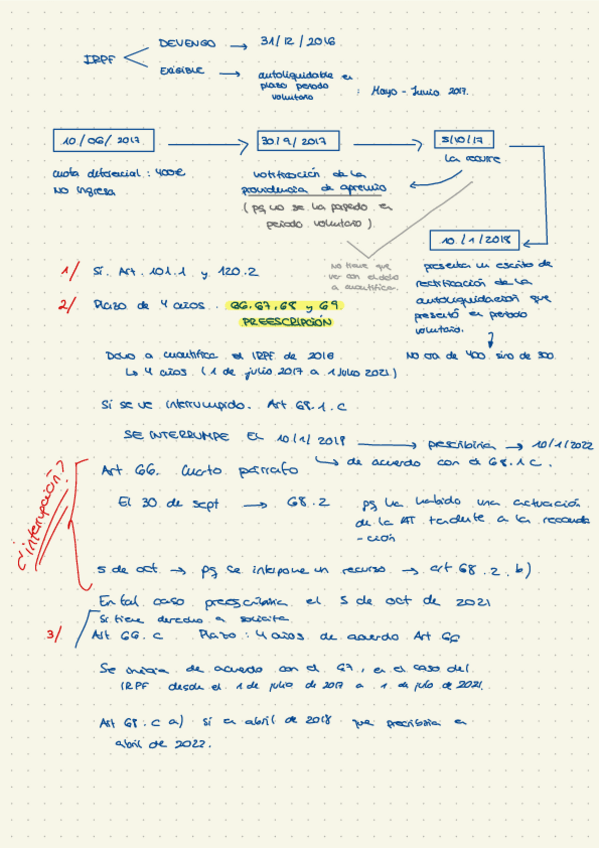 IRPF
DEVENGO → 31/12/2016
EXIGIBLE → autoliquidable en
plazo periodo
voluntario : Mayo - Junio 2017.
10/06/2017 → 30/9/2017 → 5/10/17
cuota diferencial: 400€
No ingresa
Notificación de la
providencia de apremio
(pq no se ha pagado en
periodo voluntario).
La recurre
No tiene que
ver con el dcho
a cuantificar.
10/1/2018
presenta un escrito de
rectificación de la
autoliquidación que
presentó en periodo
voluntario.
No era de 400 sino de 300.
1/ Sí. Art. 101.1 y 120.2
2/ Plazo de 4 años. 66, 67, 68 y 69
PREESCRIPCIÓN
Dcho a cuantificar el IRPF de 2016
↳ 4 años. (1 de julio 2017 a 1 Julio 2021)
Si se ve interrumpido. Art 68.1.c
SE INTERRUMPE EL 10/1/2018 → prescribiria → 10/1/2022
↳ de acuerdo con el 68.1c.
¿interrupción?
Art 66. Cuarto párrafo
El 30 de sept → 68.2 pq ha habido una actuación
de la AT tendente a la recauda
-ción
5 de oct → pq se interpone un recurso → art 68.2.b)
En tal caso preescribiria el 5 de oct de 2021
3/ Si tiene derecho a solicitar
Art 66.c Plazo: 4 años de acuerdo Art 66
Se inicia de acuerdo con el 67, en el caso del
IRPF desde el 1 de julio de 2017 a 1 de julio de 2021.
Art 68.c a) si en abril de 2018 que prescribiria en
abril de 2022.